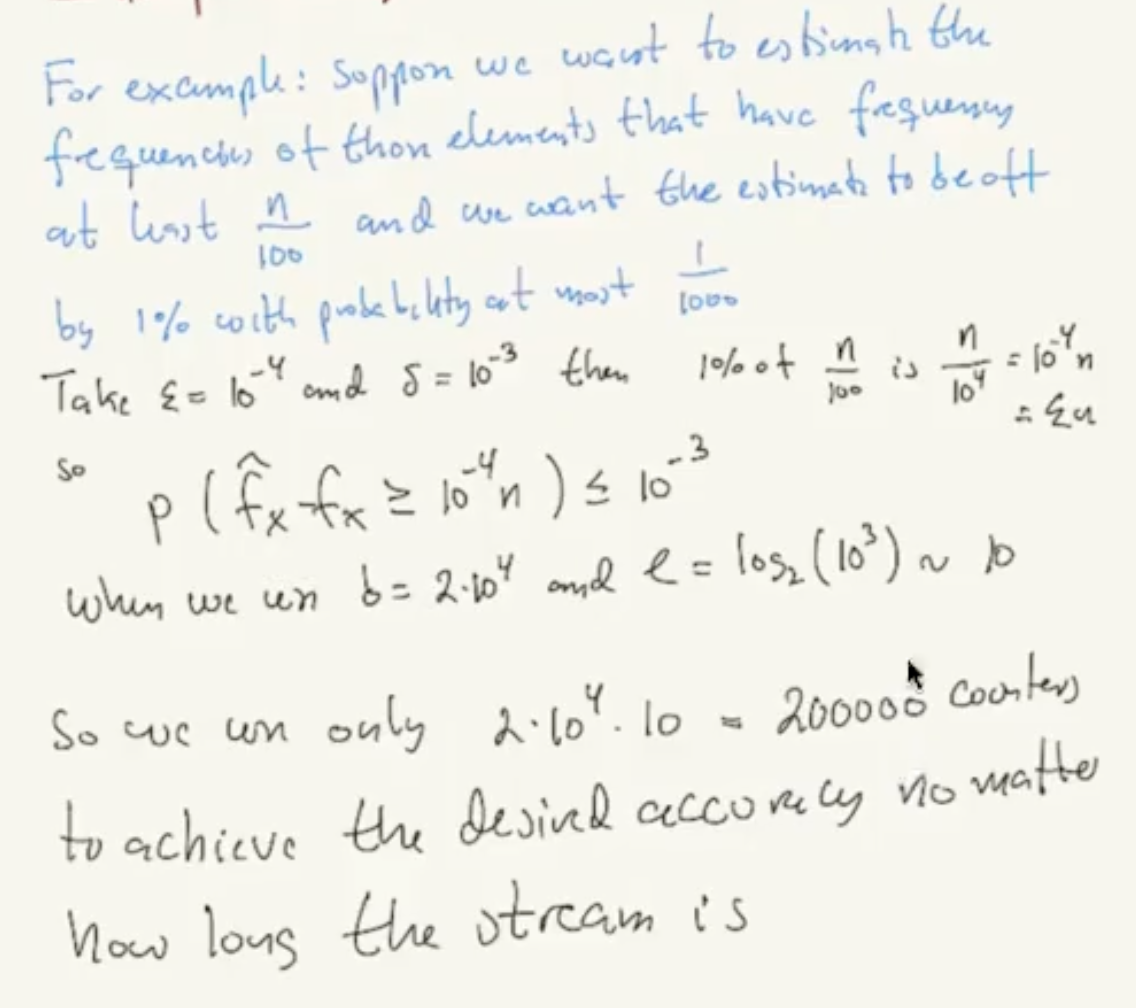 For example: Suppose we want to estimate the
frequencies of those elements that have frequency
at least n/100 and we want the estimate to be off
by 1% with probability at most 1/1000
Take ε = 10⁻⁴ and δ = 10⁻³ then 1% of n/100 is n/10⁴ = 10⁻⁴n
= εn
so
P(f̂ₓ-fₓ ≥ 10⁻⁴n) ≤ 10⁻³
when we use b = 2·10⁴ and l = log₂(10³) ~ 10
So we use only 2·10⁴·10 = 200000 counters
to achieve the desired accuracy no matter
how long the stream is